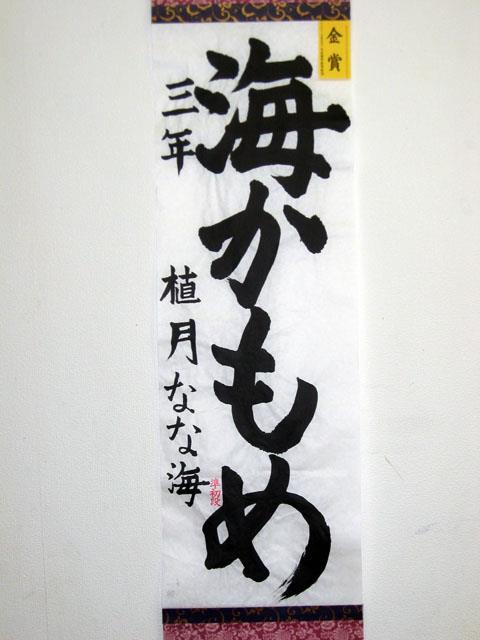 金賞
海かもめ
三年 植月なな海
準初段